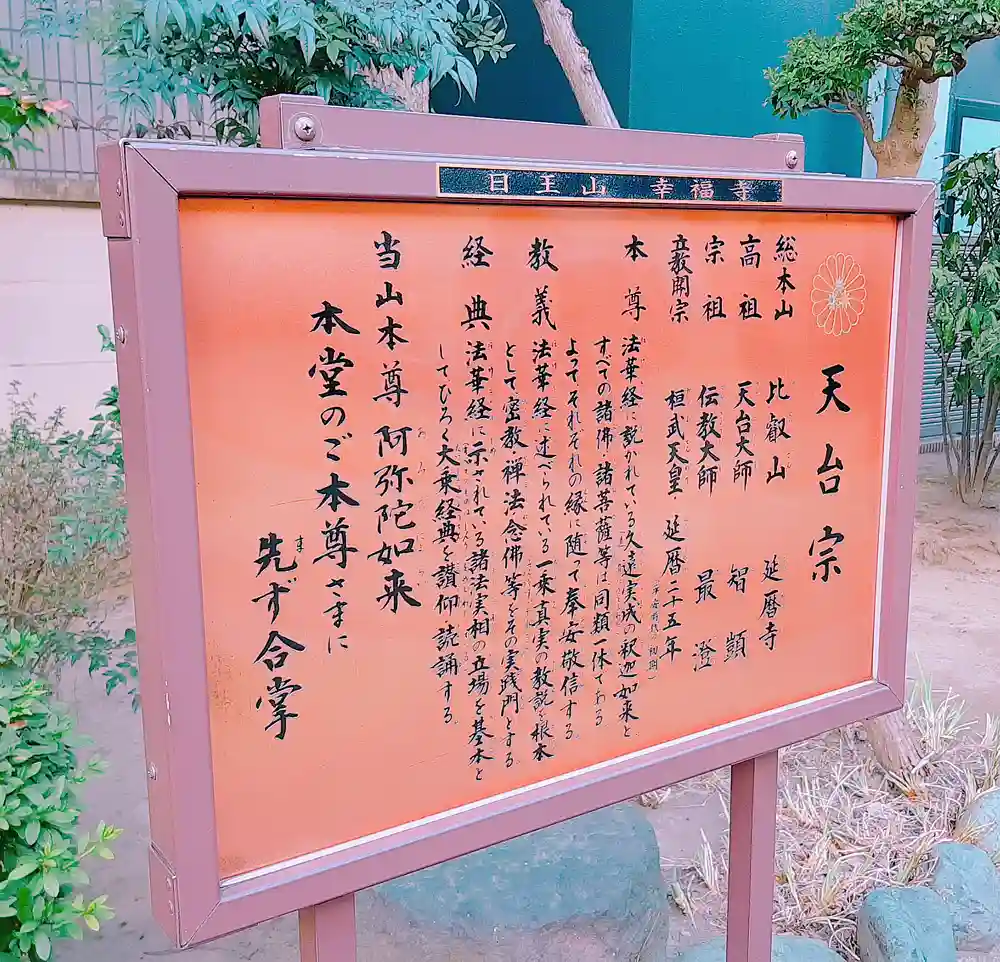 日王山 幸福寺
天台宗
総本山 比叡山 延暦寺
高祖 天台大師 智顗
宗祖 伝教大師 最澄
立教開宗 桓武天皇 延暦二十五年
(平安時代の初期)
本尊 法華経に説かれている久遠実成の釈迦如来と
すべての諸佛・諸菩薩等は同類一体である
よってそれぞれの縁に随って奉安敬信する。
教義 法華経に述べられている一乗真実の教説を根本
として密教・禅法念佛等をその実践門とする。
経典 法華経に示されている諸法実相の立場を基本と
してひろく大乗経典を讃仰・読誦する。
当山本尊 阿弥陀如来
本堂のご本尊さまに
先ず合掌